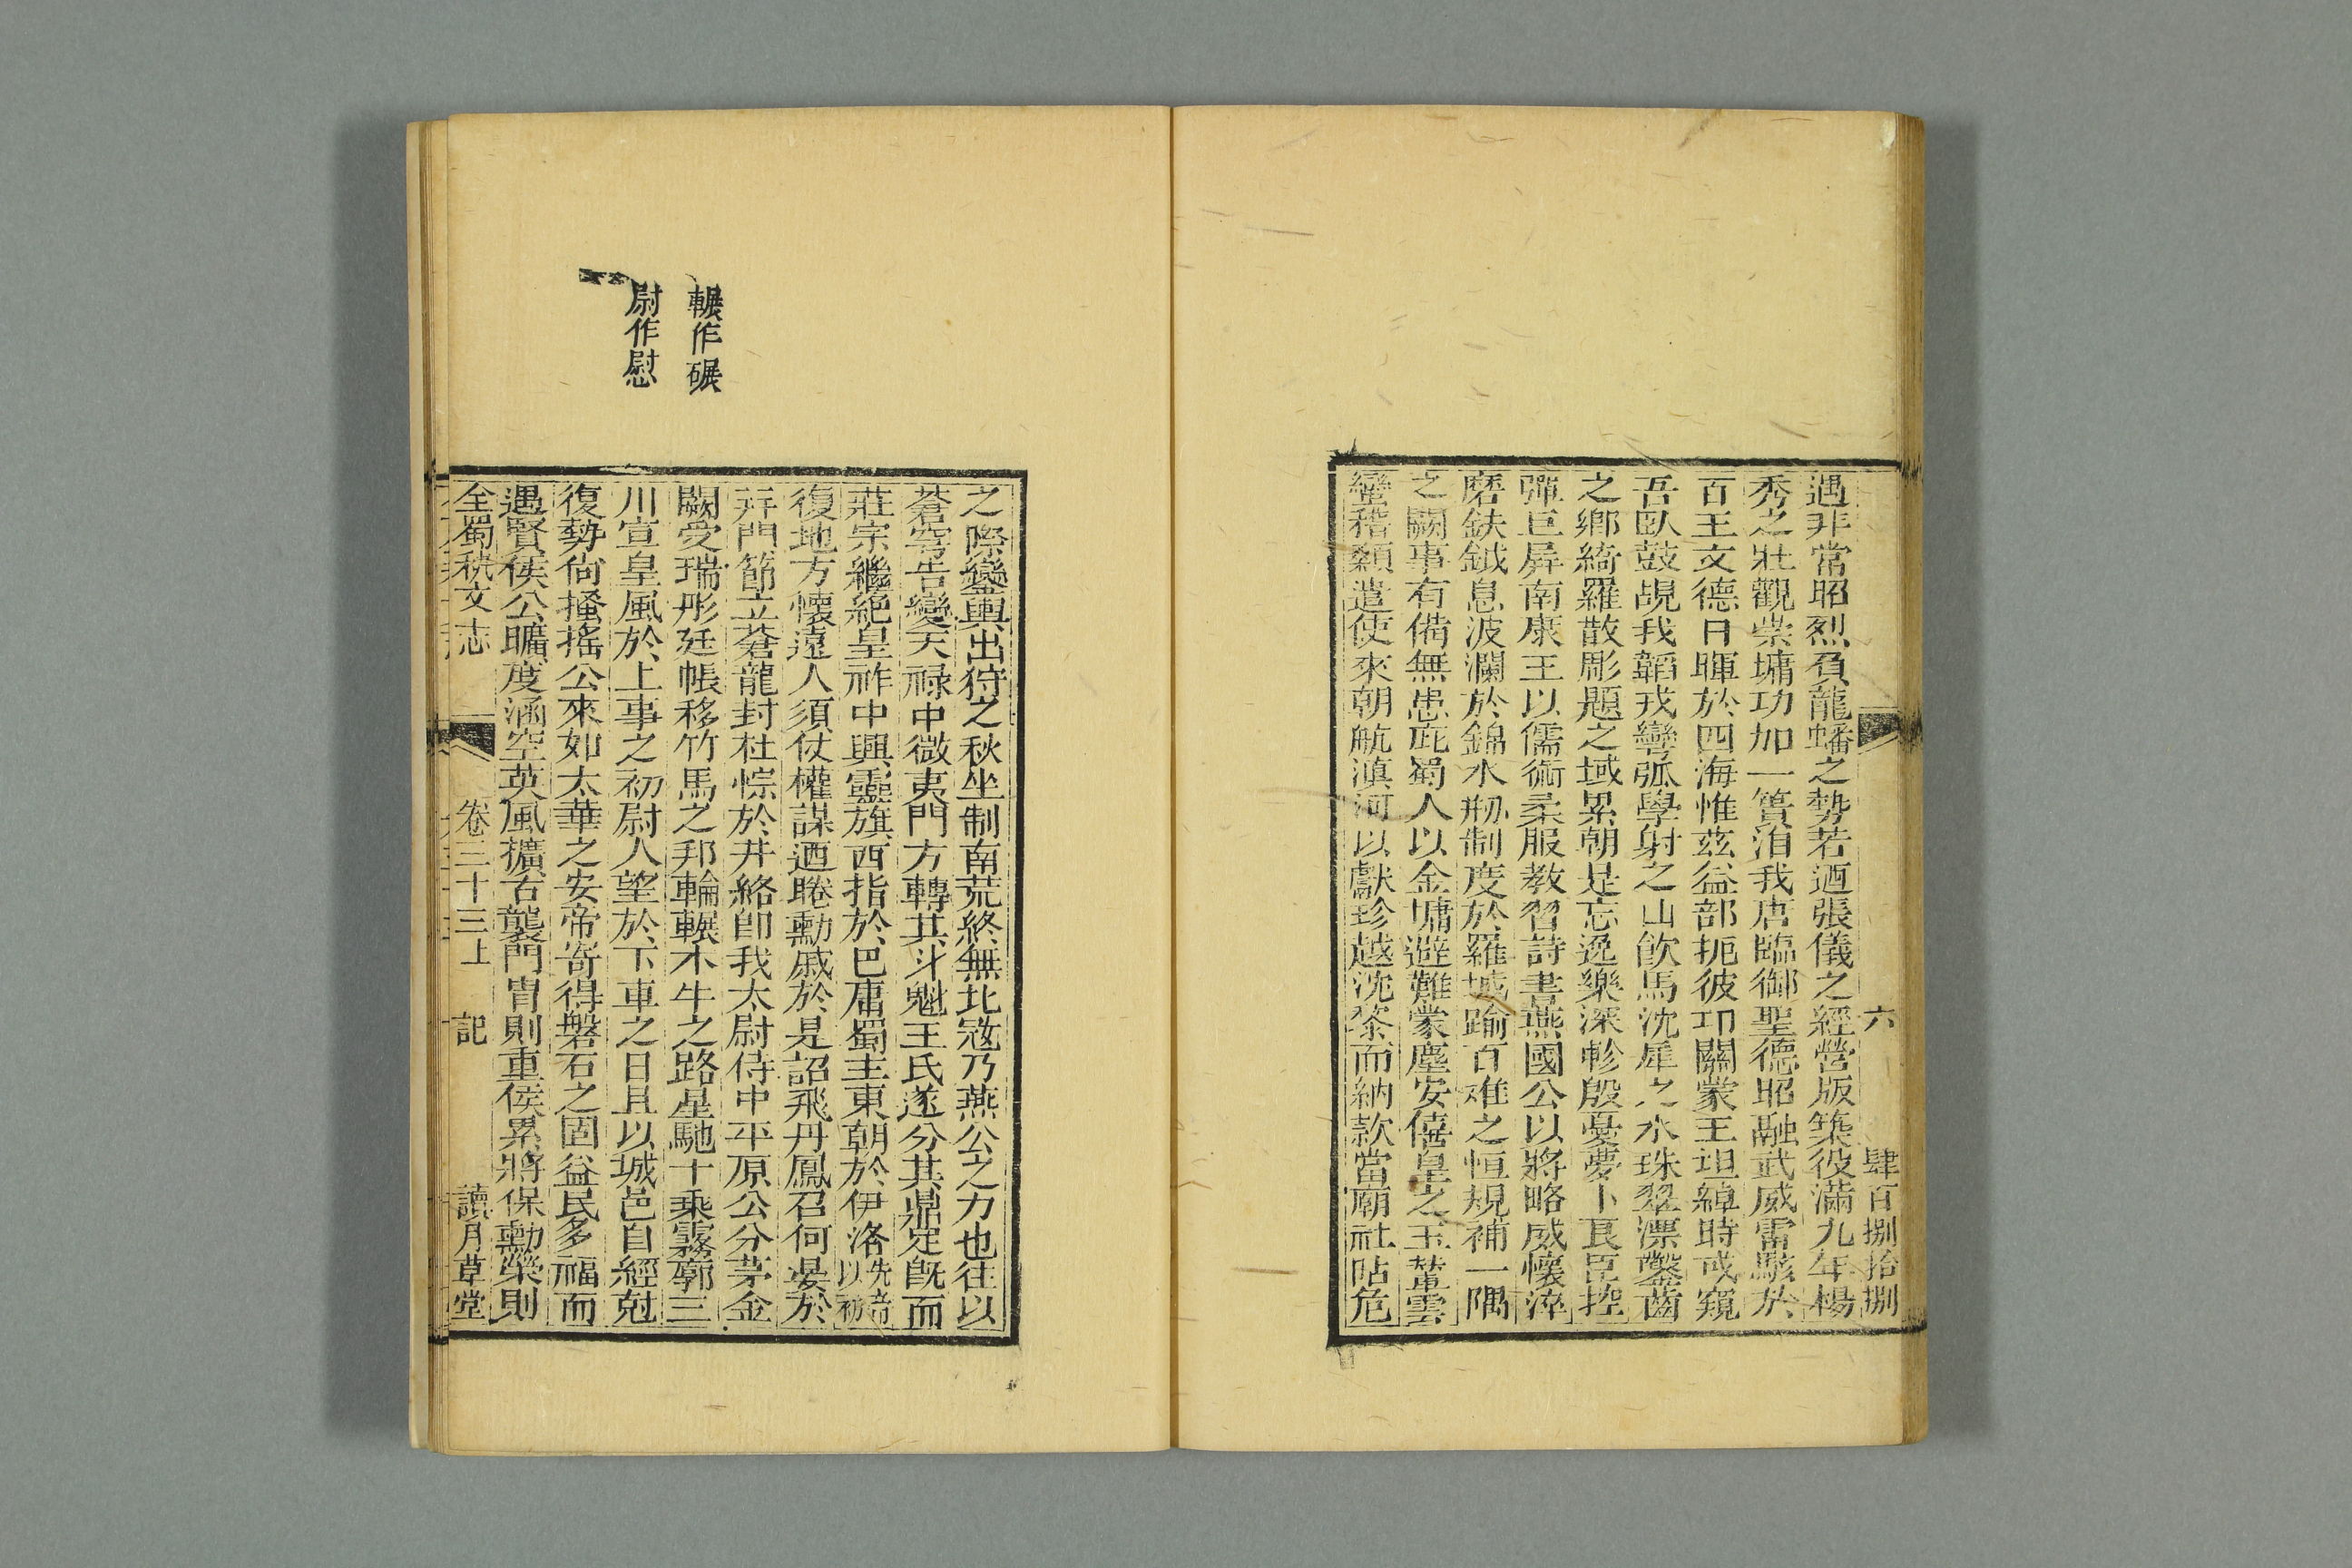 六 肆百捌拾捌
遇非常昭烈負龍蟠之勢若迺張儀之經營版築役滿九年楊
秀之壯觀崇墉功加一簣洎我唐臨御聖德昭融武威雷駭於
百王文德日暉於四海惟茲益部扼彼邛關蒙王坦綽時或窺
吾臥鼓覘我韜戎彎弧學射之山飲馬沈犀之水珠翠漂鑿齒
之鄉綺羅散彫題之域累朝是忘逸樂深軫殷憂夢卜良臣控
彈巨屛南康王以儒術柔服教習詩書燕國公以將略威懷淬
磨鈇鉞息波瀾於錦水剏制度於羅城踰百雉之恒規補一隅
之闕事有備無患庇蜀人以金墉避難蒙塵安僖皇之玉輦雲
蠻稽顙遣使來朝航滇河以獻珍越沈黎而納款當廟社阽危
之際鑾輿出狩之秋坐制南荒終無北寇乃燕公之力也往以
蒼穹告變天祿中微夷門方轉其斗魁王氏遂分其鼎足旣而
莊宗繼絕皇祚中興靈旗西指於巴庸蜀主東朝於伊洛先帝以初
復地方懷遠人須仗權謀迺睠勳戚於是詔飛丹鳳召何晏於
幷門節立蒼龍封杜悰於井絡卽我太尉侍中平原公分茅金
闕受瑞彤廷帳移竹馬之邦輪輾木牛之路星馳十乘霧廓三
川宣皇風於上事之初尉人望於下車之日且以城邑自經尅
復勢尙搔搖公來如太華之安帝寄得磐石之固益民多福而
遇賢侯公曠度涵空英風擴古襲門胄則重侯累將保勳榮則
全蜀秇文志 卷三十三上 記 讀月草堂
輾作碾
尉作慰